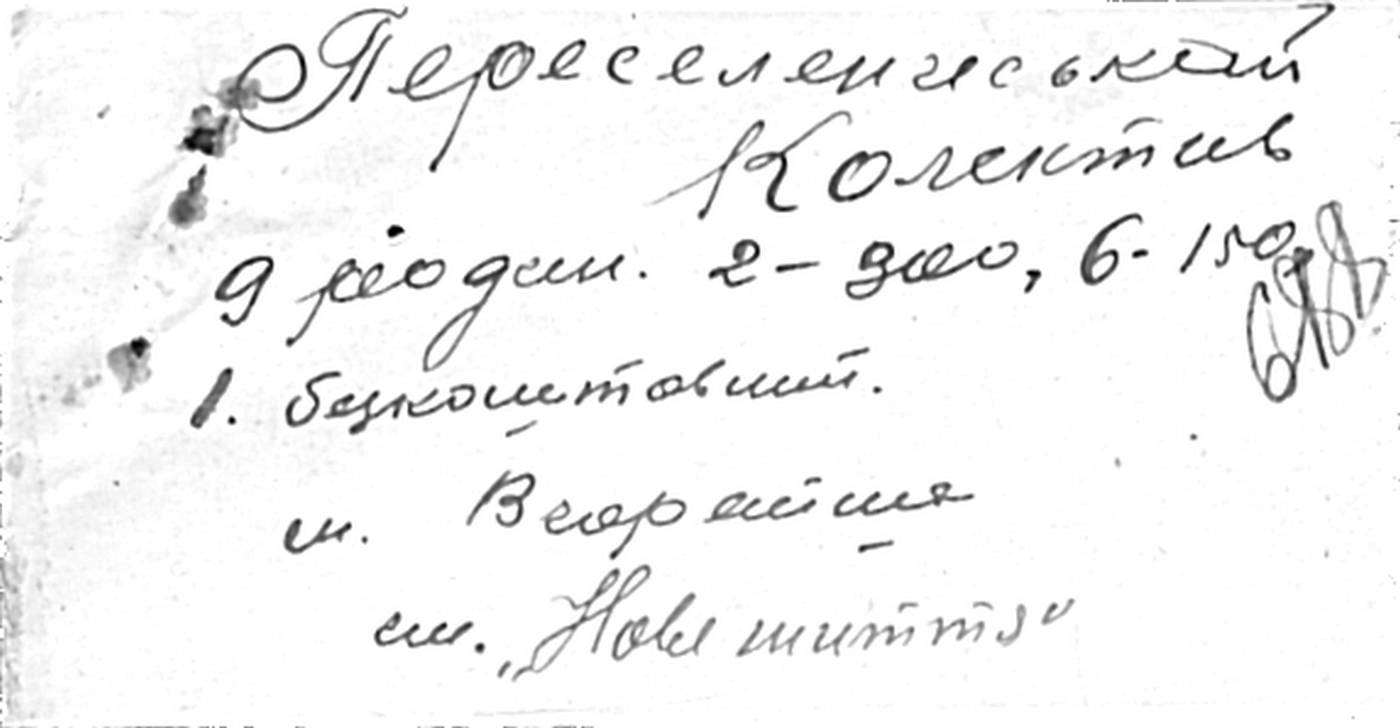 Переселенчеський
Колектив
9 родин. 2- зло, 6- 150
1. безкоштовний.
м. Вчорайше
см. „Нове життя"